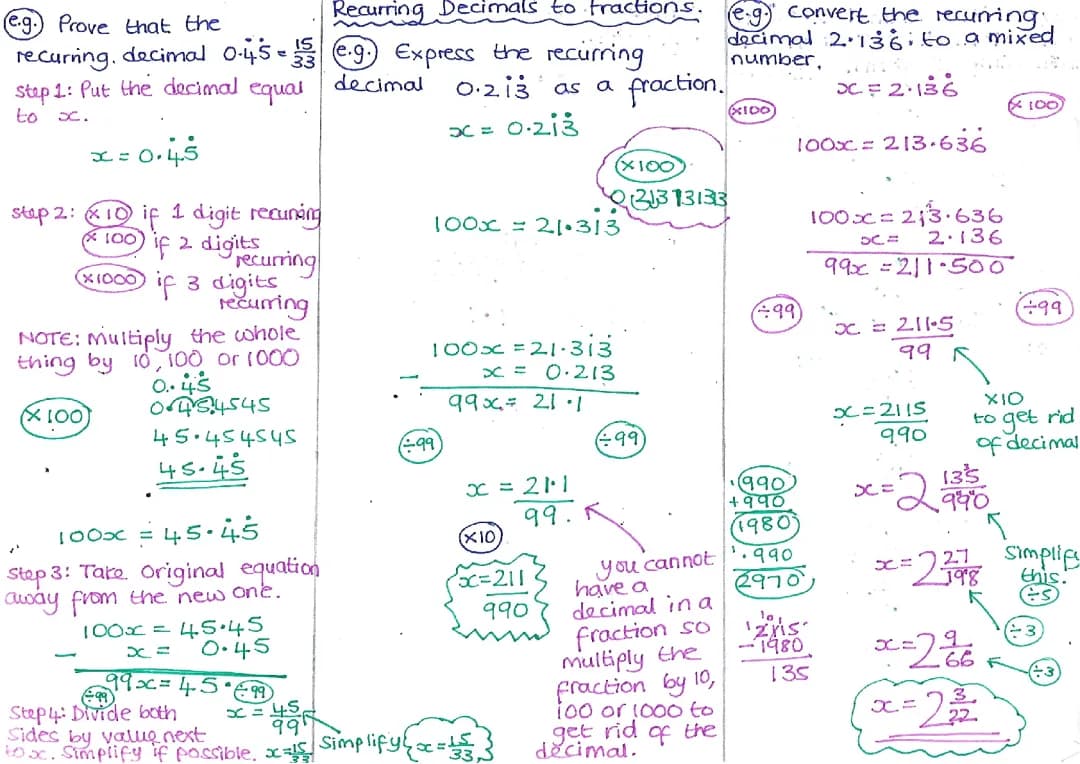 Recurring Decimals to fractions.
(e.g.) Prove that the
recurring. decimal 0.4̇5̇ = 15/33
Step 1: Put the decimal equal
to x.
x = 0.4̇5̇
step 2: ×10 if 1 digit recurring
×100 if 2 digits
recurring
×1000 if 3 digits
recurring
NOTE: multiply the whole
thing by 10, 100 or 1000
0.4̇5̇
×100
0.454545
45.454545
45.4̇5̇
100x = 45.4̇5̇
Step 3: Take original equation
away from the new one.
100x = 45.45
– x = 0.45
99x = 45.
÷99 ÷99
Step 4: Divide both
sides by value next
to x. Simplify if possible.
x = 45/99
x = 15/33
Simplify x = 15/33
(e.g.) Express the recurring
decimal 0.21̇3̇ as a fraction.
x = 0.21̇3̇
×100
0.21313133
100x = 21.31̇3̇
100x = 21.31̇3̇
– x = 0.213
99x = 21.1
÷99 ÷99
x = 21.1/99.
×10
x = 211/990
you cannot
have a
decimal in a
fraction so
multiply the
fraction by 10,
100 or 1000 to
get rid of the
decimal.
(e.g.) Convert the recurring
decimal 2.13̇6̇ to a mixed
number.
x = 2.13̇6̇
×100 ×100
100x = 213.63̇6̇
100x = 213.636
x = 2.136
99x = 211.500
÷99 ÷99
x = 211.5/99
×10
to get rid
of decimal
x = 2115/990
990
+990
1980
990
2970
2115
–1980
135
x = 2 135/990
Simplify
this.
÷5
x = 2 27/198
÷3
x = 2 9/66
÷3
x = 2 3/22